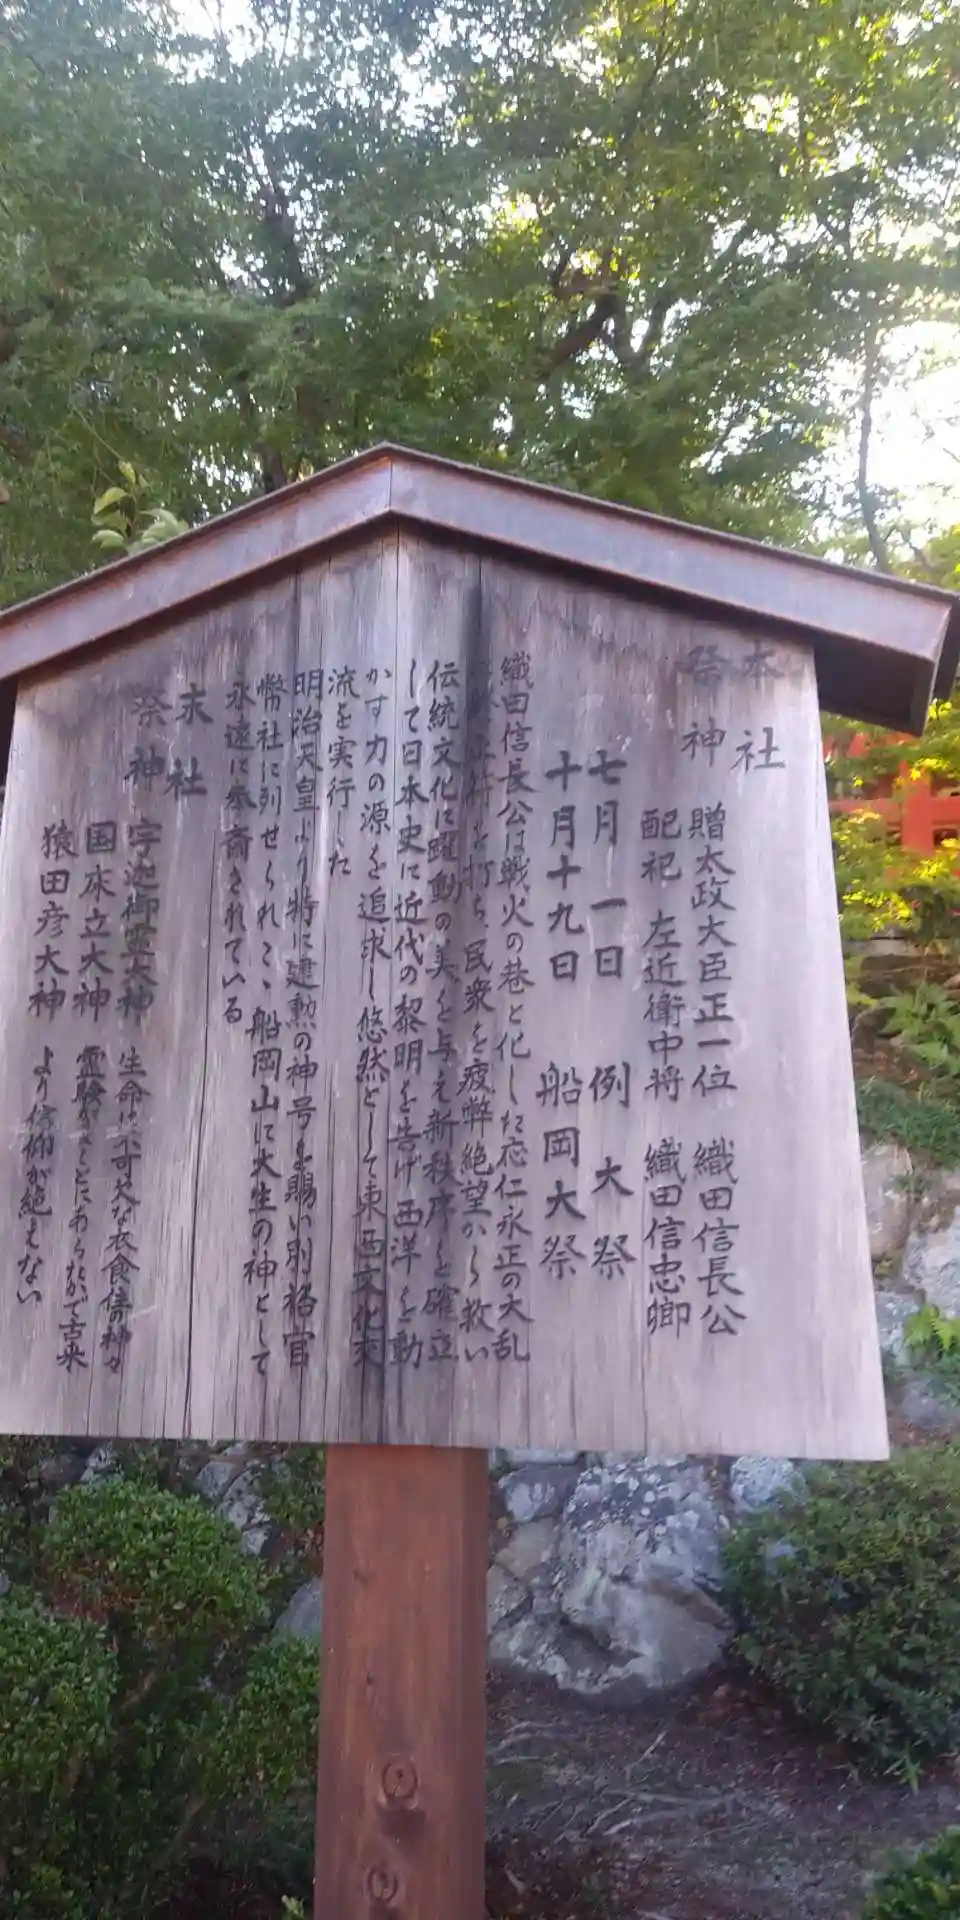 本社
祭神
贈太政大臣正一位 織田信長公
配祀 左近衛中将 織田信忠卿
七月一日 例大祭
十月十九日 船岡大祭
織田信長公は戦火の巷と化した応仁永正の大乱
を打ち、民衆を疲弊絶望から救い
伝統文化に躍動の美を与え新秩序を確立
して日本史に近代の黎明を告げ西洋を動
かす力の源を追求し悠然として東西文化交
流を実行した
明治天皇より特に建勲の神号を賜い別格官
幣社に列せられここ船岡山に大生の神として
永遠に奉斎されている
末社
祭神
宇迦御霊大神
国床立大神
猿田彦大神
生命に不可欠な衣食住の神々
霊験まことにあらたかで古来
より信仰が絶えない